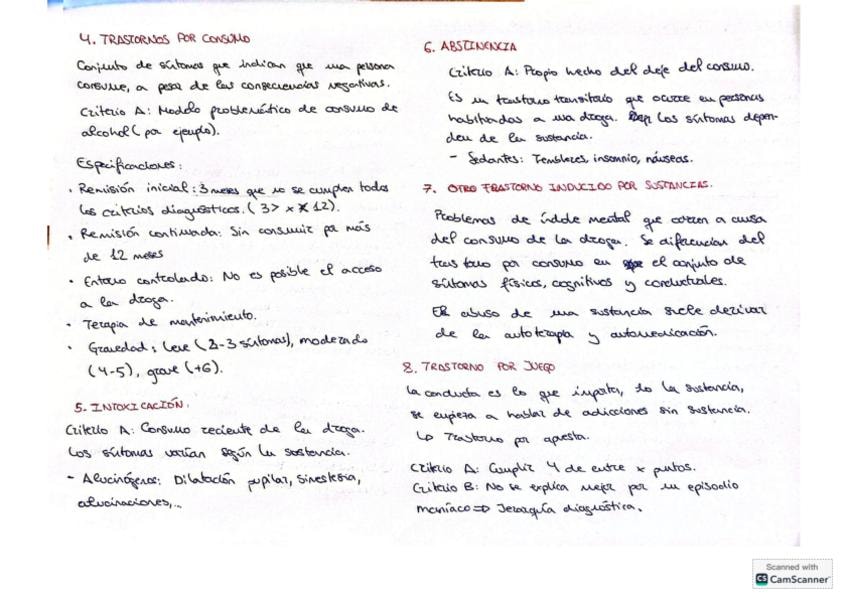 4. TRASTORNOS POR CONSUMO
Conjunto de síntomas que indican que una persona
consume, a pesar de las consecuencias negativas.
Criterio A: Modelo problemático de consumo de
alcohol (por ejemplo).
Especificaciones:
· Remisión inicial: 3 meses que no se cumplen todos
los criterios diagnósticos. (3> x 12).
· Remisión continuada: Sin consumir por más
de 12 meses
· Entorno controlado: No es posible el acceso
a la droga.
· Terapia de mantenimiento.
· Gravedad: Leve (2-3 síntomas), moderado
(4-5), grave (+6).
5. INTOXICACIÓN.
Criterio A: Consumo reciente de la droga.
Los síntomas varían según la sustancia.
- Alucinógenos: Dilatación pupilar, sinestesia,
alucinaciones,...
6. ABSTINENCIA
Criterio A: Propio hecho del deje del consumo.
Es un trastorno transitorio que ocurre en personas
habituadas a una droga. Los síntomas depen-
den de la sustancia.
- Sedantes: Temblores, insomnio, náuseas.
7. OTRO TRASTORNO INDUCIDO POR SUSTANCIAS.
Problemas de índole mental que ocurren a causa
del consumo de la droga. Se diferencian del
trastorno por consumo en el conjunto de
síntomas físicos, cognitivos y conductuales.
El abuso de una sustancia suele derivar
de la autoterapia y automedicación.
8. TRASTORNO POR JUEGO
La conducta es lo que importa, no la sustancia,
se empieza a hablar de adicciones sin sustancia.
↳ Trastorno por apuesta.
Criterio A: Cumplir 4 de entre x puntos.
Criterio B: No se explica mejor por un episodio
maníaco => Jerarquía diagnóstica.
Scanned with
CS CamScanner